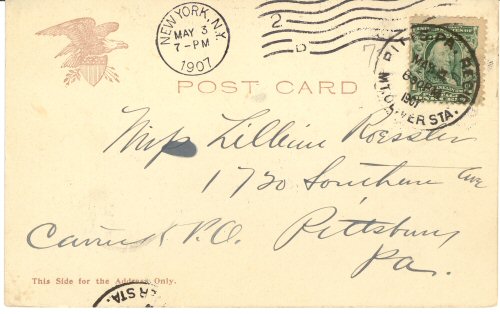 NEW YORK, N.Y.
MAY 3
7-PM
1907
PITTS, PA. REC'D
MAY 4
1907
MT. OLIVER STA.
POST CARD
Miss Lillian Roessler
1730 Southern Ave
Carrick P.O. Pittsburg
Pa.
This Side for the Address Only.
ER STA.